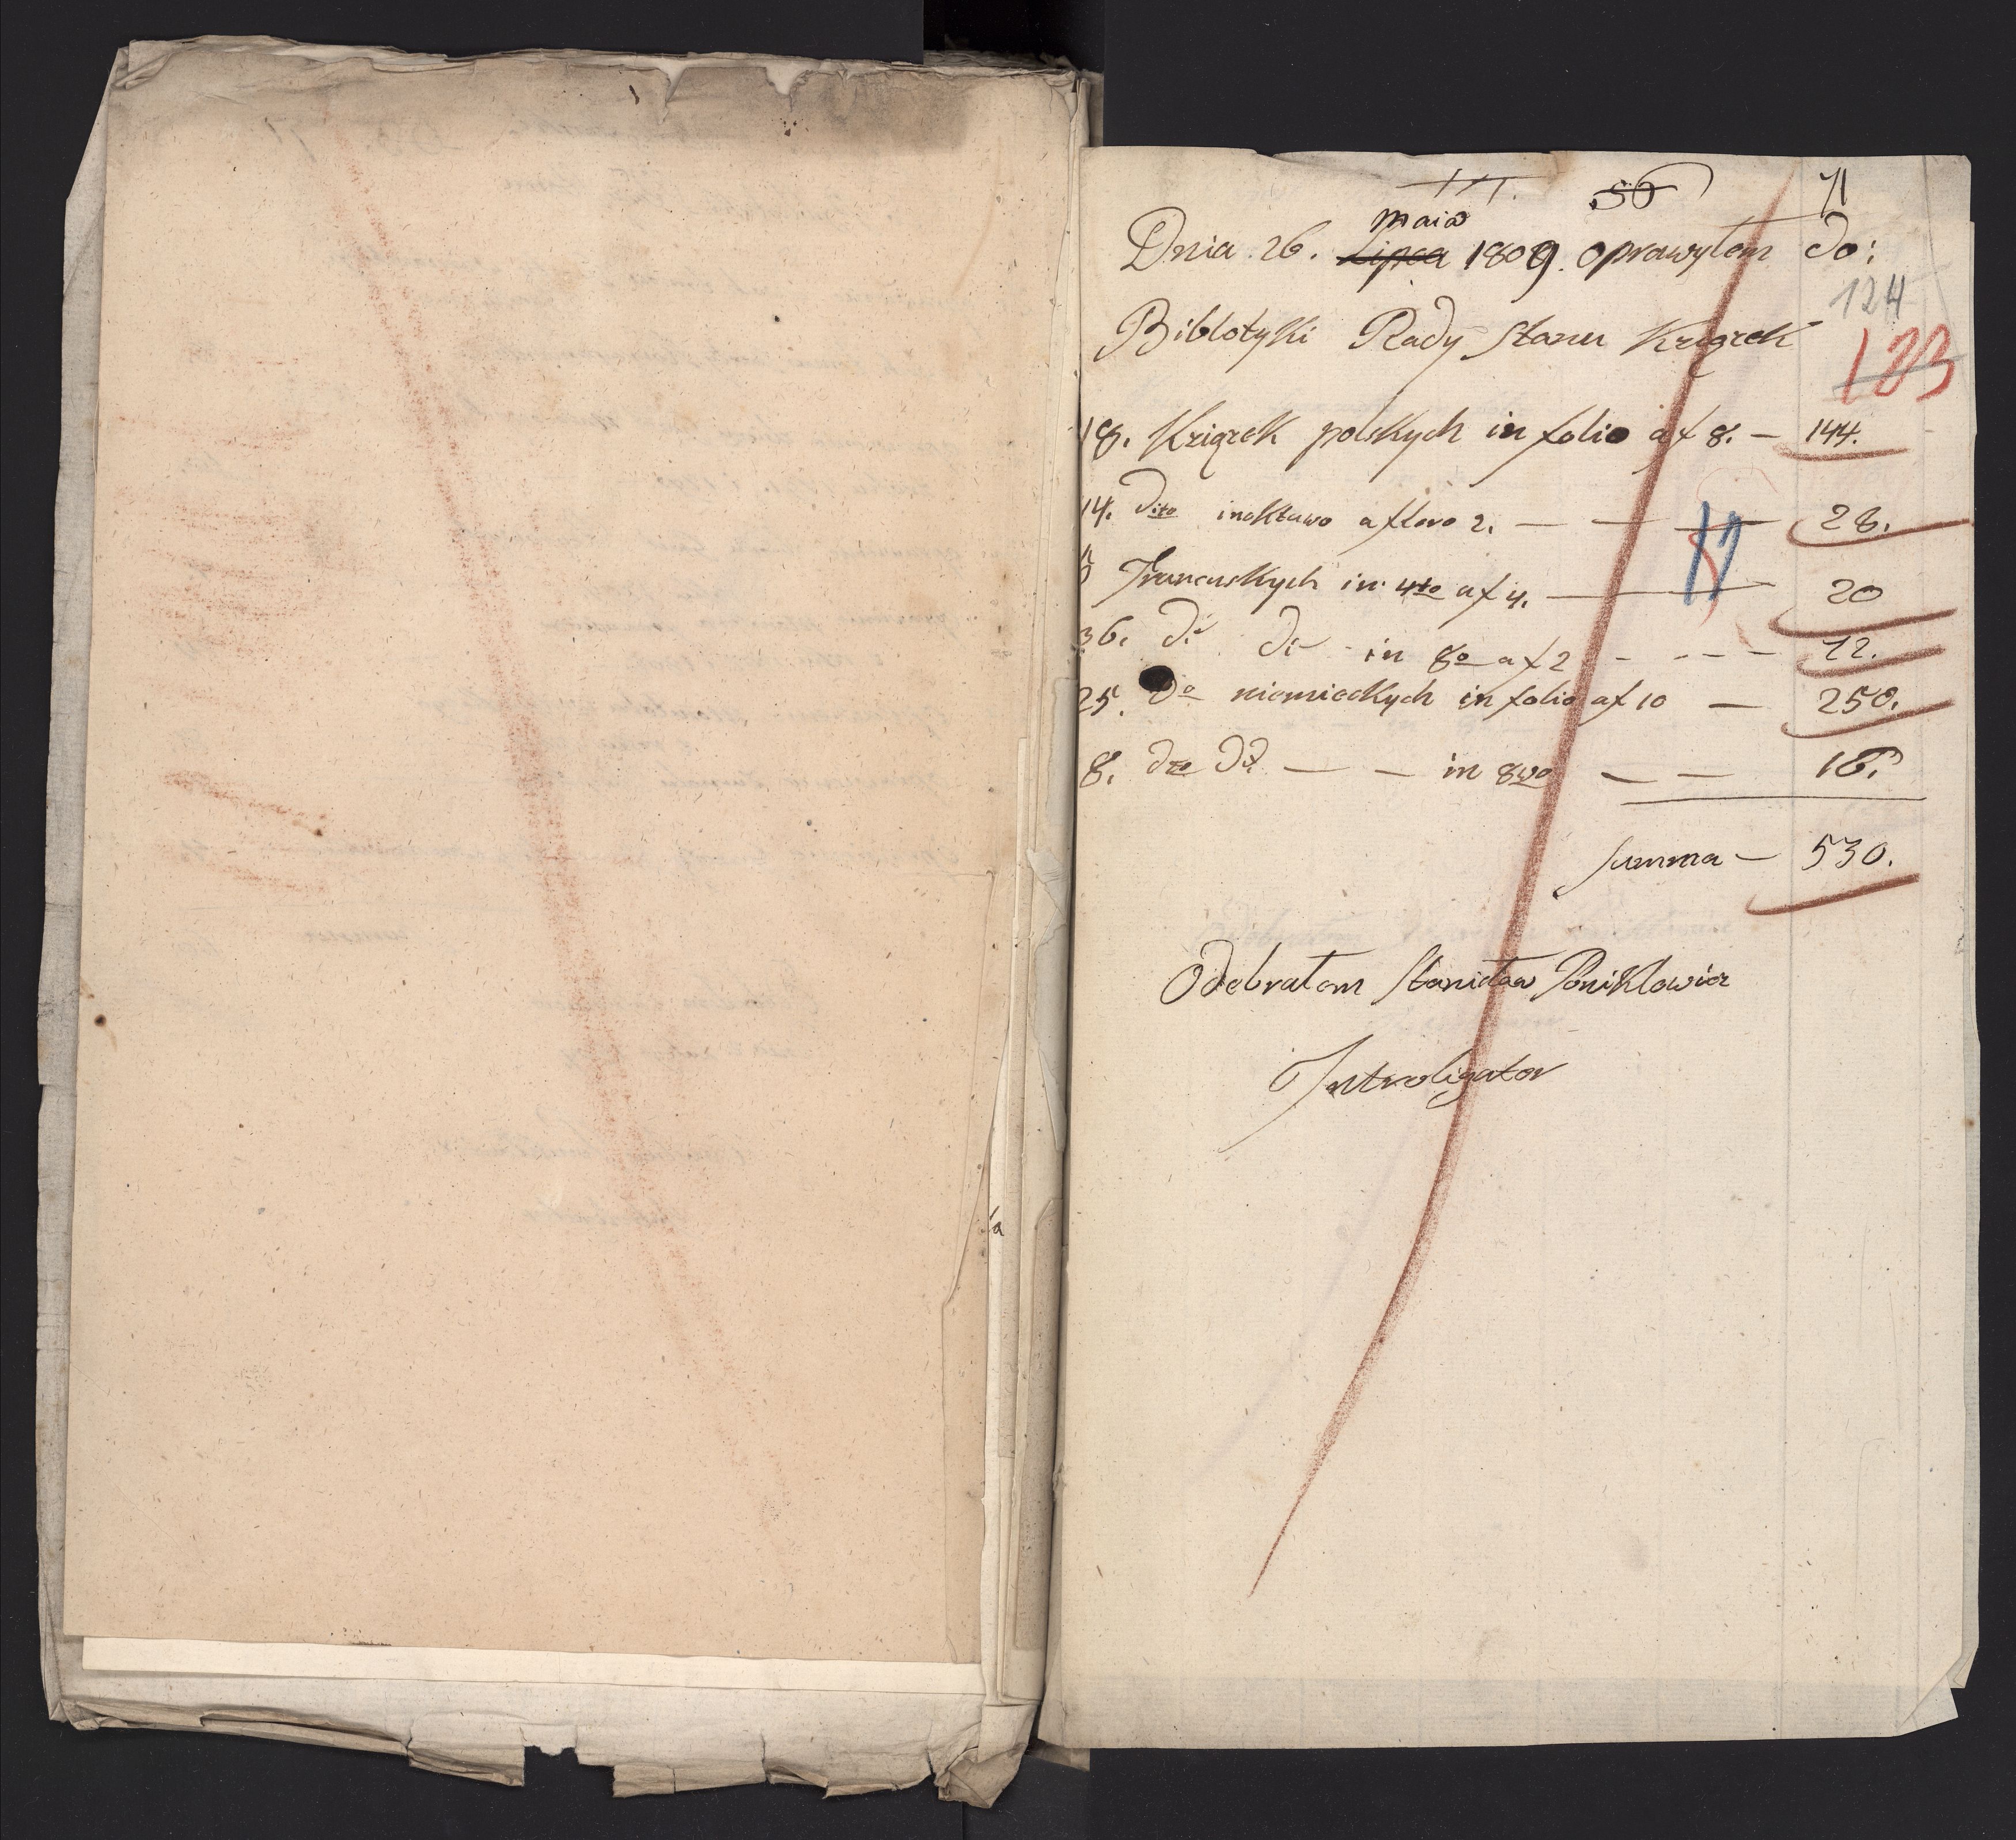 50 71
maia
Dnia 26. Lipca 1809. oprawylem do:
124
Biblotyki Rady Stanu Kziązek
123
18. Kziązek polskych in folio a f 8. — 144.
14. dito inoktawo a flore 2. — — — 28.
17
5 Francuskych in 4to a f 4. — 20
36. dı dı in 8o a f 2 - - - - 72.
25. do niemieckych in folio a f 10 — 250.
8. dto dt — — in 8vo — — 16.
summa — 530.
Odebrałem Stanisław Poniklowicz
Introligator